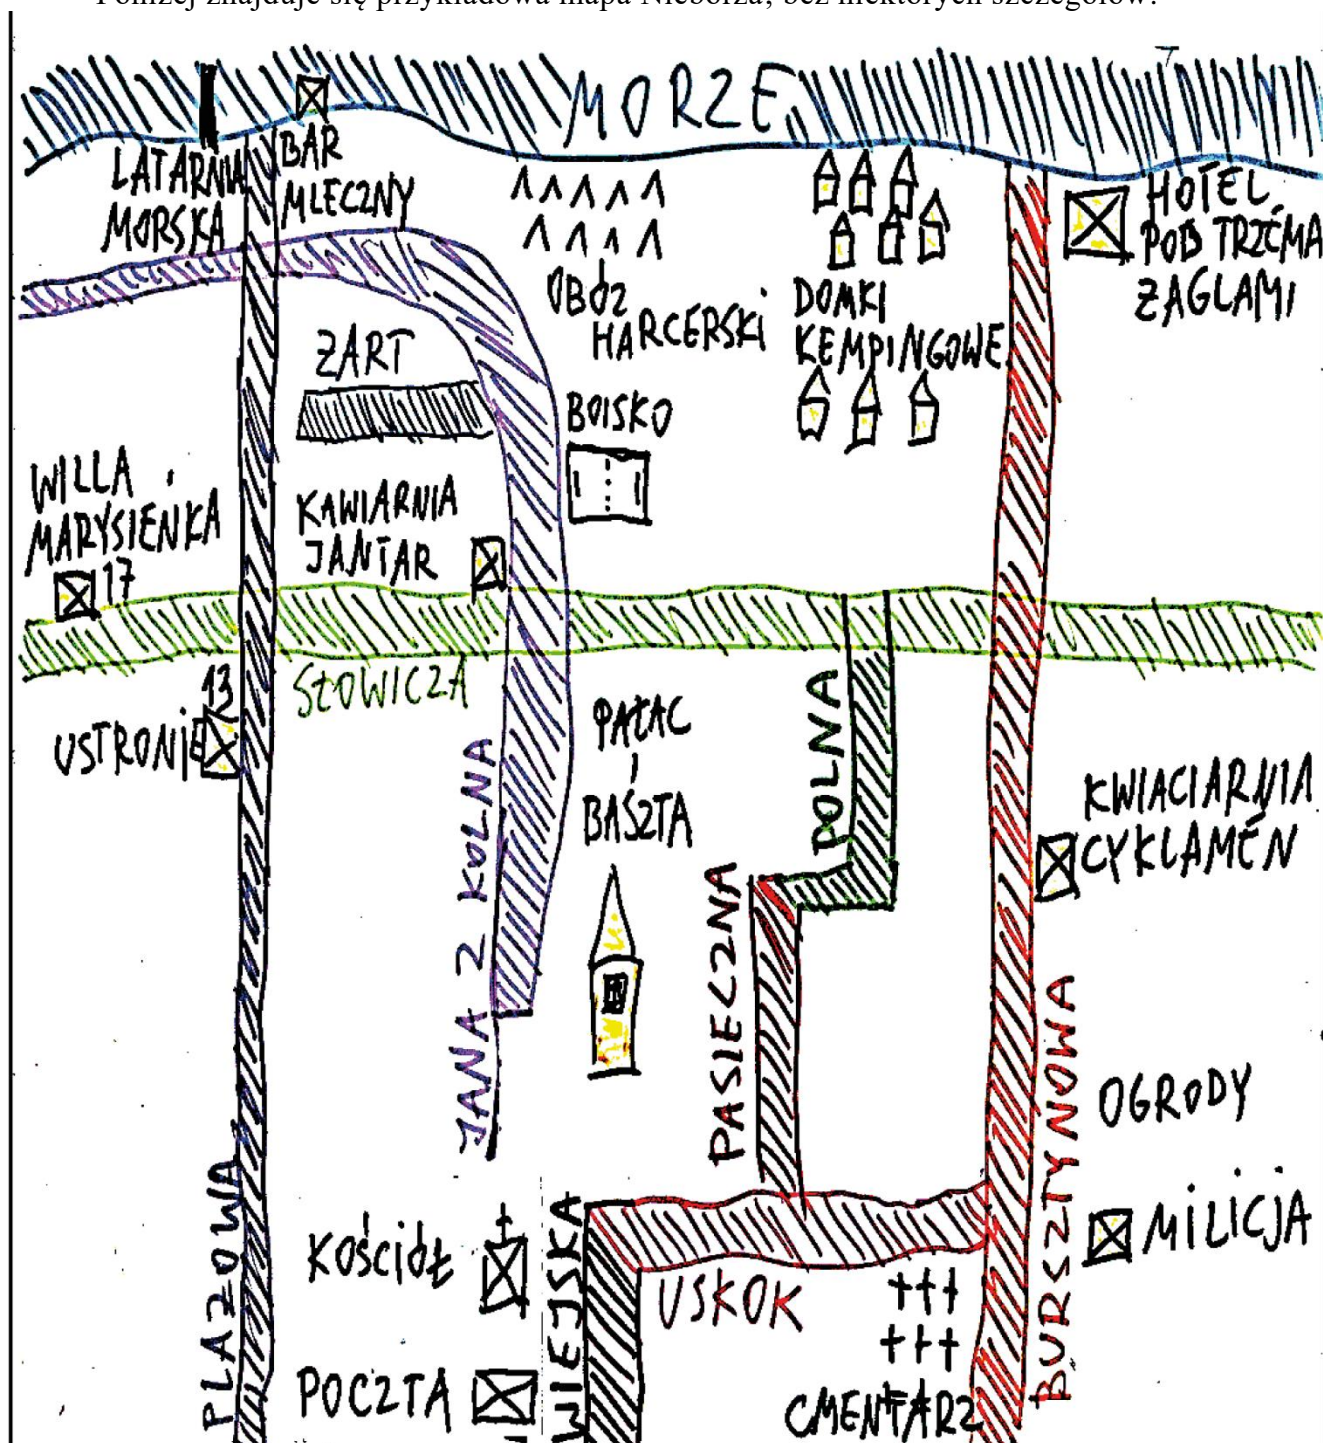 Poniżej znajduje się przykładowa mapa Nieborza, bez niektórych szczegółów:
MORZE
LATARNIA
MORSKA
BAR
MLECZNY
HOTEL
POD TRZEMA
ŻAGLAMI
OBÓZ
HARCERSKI
DOMKI
KEMPINGOWE
ŻART
BOISKO
WILLA
MARYSIEŃKA
17
KAWIARNIA
JANTAR
SŁOWICZA
13
USTRONIE
JANA Z KOLNA
PAŁAC
I
BASZTA
POLNA
KWIACIARNIA
CYKLAMEN
PASIECZNA
BURSZTYNOWA
OGRODY
PLAŻOWA
KOŚCIÓŁ
WIEJSKA
USKOK
MILICJA
POCZTA
CMENTARZ